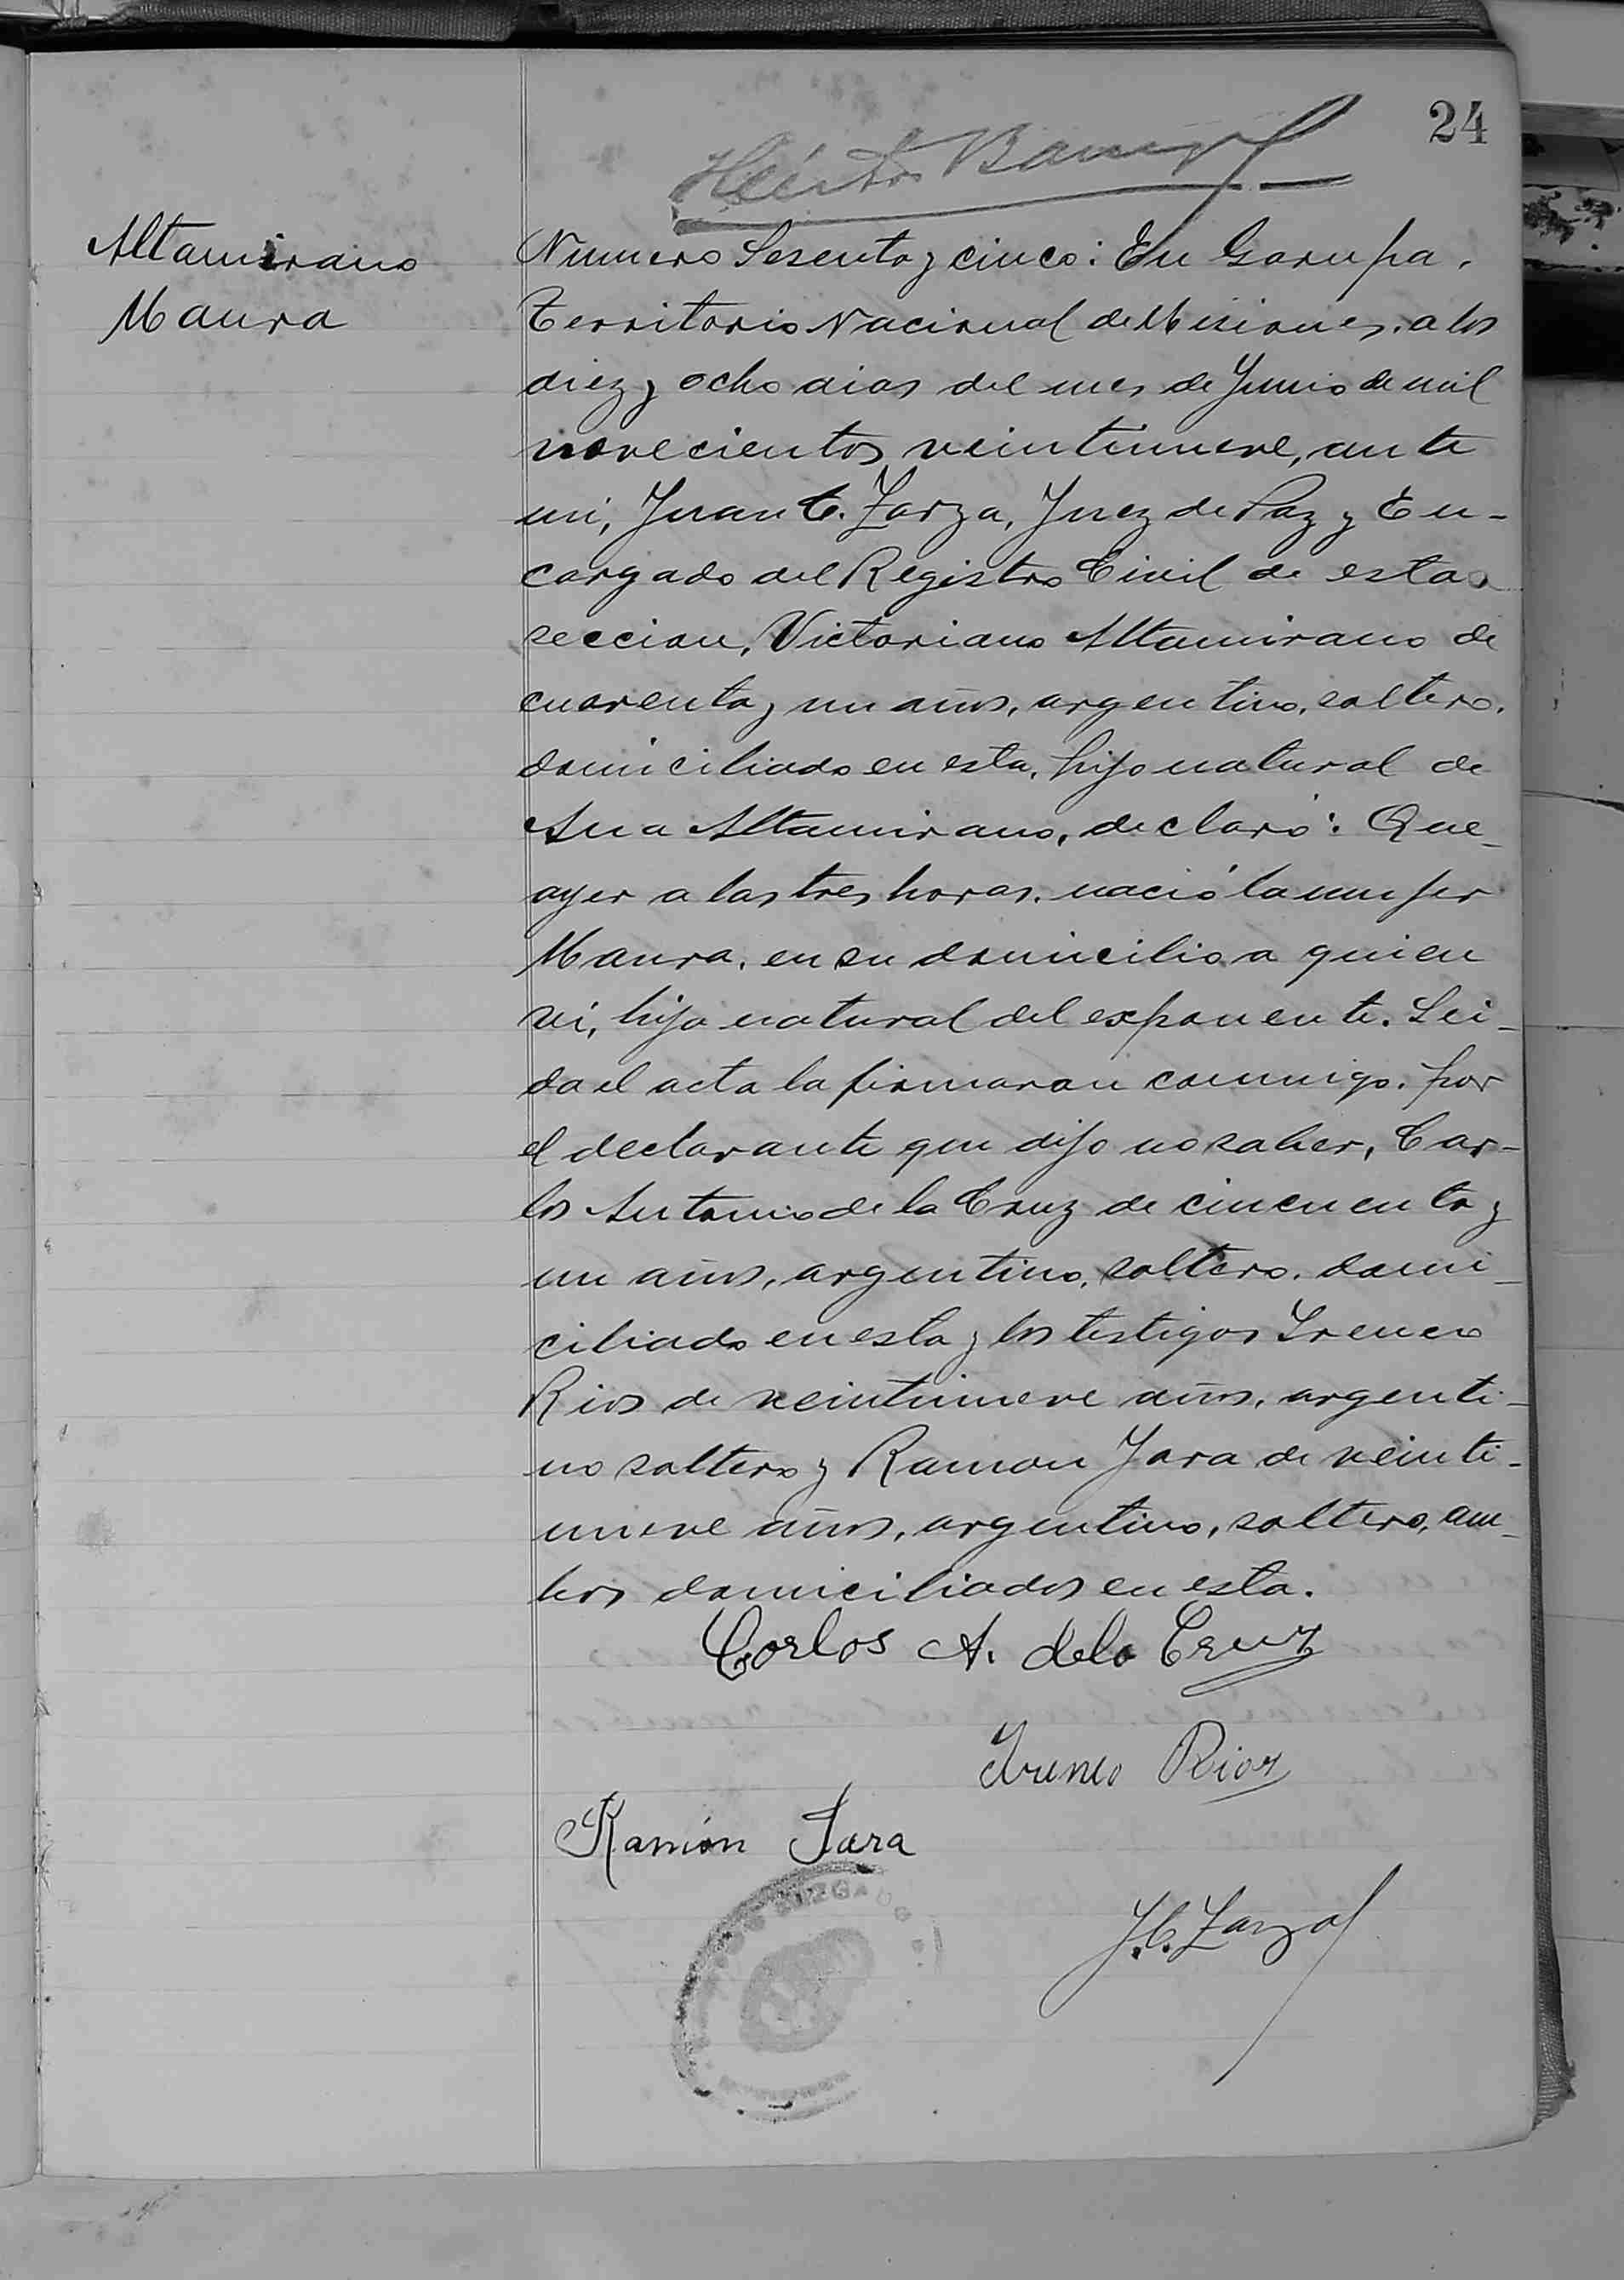 24
Héctor
Altamirano
Maura
Numero Sesenta y cinco: En Garupa,
Territorio Nacional de Misiones, a los
diez y ocho dias del mes de Junio de mil
novecientos veintinueve, ante
mi, Juan C. Zarza, Juez de Paz y En-
cargado del Registro Civil de esta
seccion, Victoriano Altamirano de
cuarenta y un años, argentino, soltero,
domiciliado en esta, hijo natural de
Ana Altamirano, declaró: Que
ayer a las tres horas, nació la mujer
Maura, en su domicilio a quien
vi, hija natural del exponente. Lei-
da el acta la firmaron conmigo, por
el declarante que dijo no saber, Car-
los Antonio de la Cruz de cincuenta y
un años, argentino, soltero, domi-
ciliado en esta y los testigos Ireneo
Rios de veintinueve años, argenti-
no soltero y Ramon Jara de veinti-
nueve años, argentino, soltero, am-
bos domiciliados en esta.
Carlos A. dela Cruz
Ireneo Rios
Ramón Jara
J.C. Zarza
JUZGADO